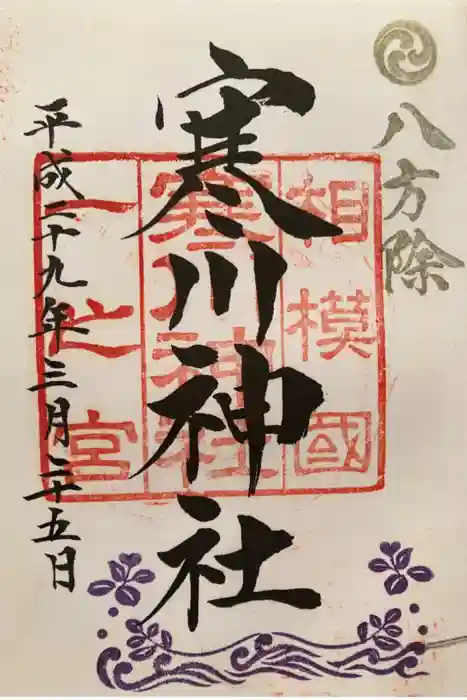 八方除
寒川神社
平成二十九年三月二十五日
相模國
寒川神社
一之宮